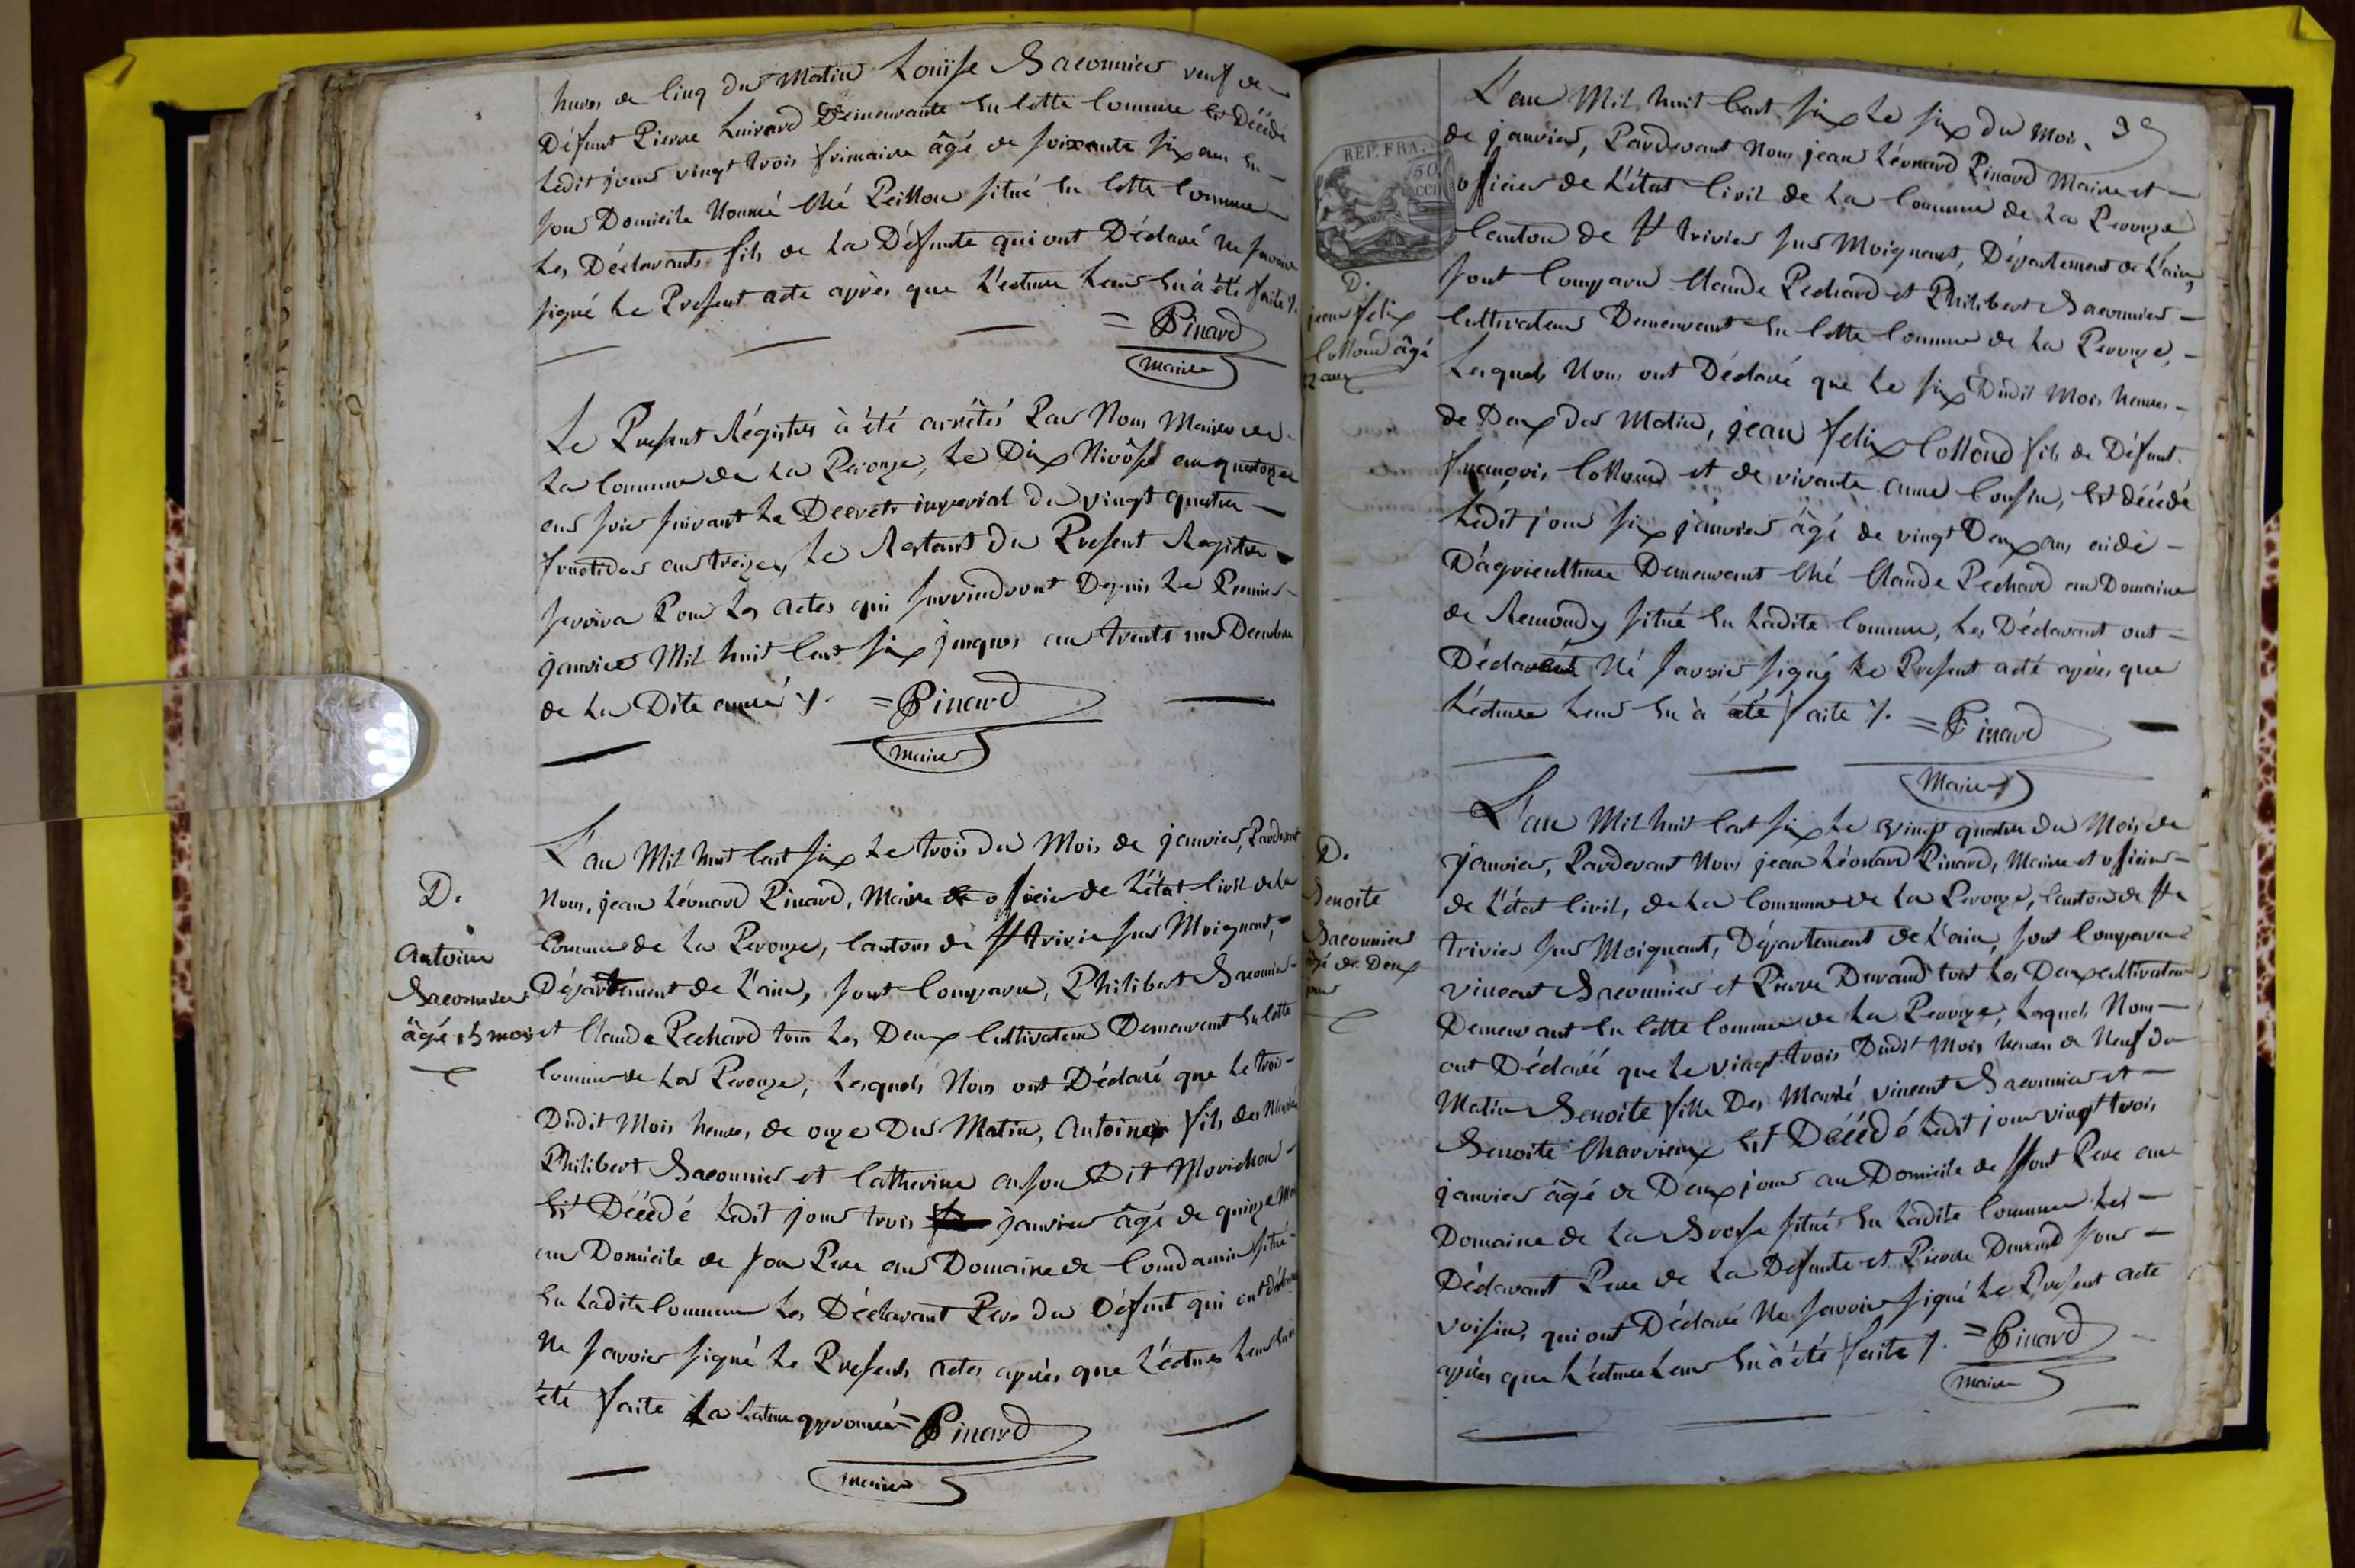 heures de Cinq du Matin Louise Saconnier veuf de
Défunt Pierre Luivard Demeurante En Cette Commune Est Décédé
Ledit jour vingt trois frimaire âgé de soixante six ans En
son Domicile Nommé Ché Peillon situé En Cette Commune
Les Déclarants fils de La Défunte qui ont Déclaré Ne savoir
signé Le Present acte après que L'ecture Leur En à été faite ./.
= Pinard
Maire
Le Present Régistre à été arrêtés Par Nous Maire de
La Commune de La Peyrouze, Le Dix Nivôse an quatorze
au soir suivant Le Decrets imperial du vingt quatre
fructidor an treize, Le Restant du Present Registre
servira Pour Les actes qui surviendront Depuis Le Premier
janvier Mil huit Cent six jusques au trente un Decembre
de La Dite année ./. = Pinard
Maire
L'an Mil huit Cent six Le trois du Mois de janvier, Pardevant
Nous, jean Léonard Pinard, Maire et officier de L'état Civil de La
Commune de La Peyrouze, Cantons de St trivier sur Moignent,
Département de L'ain, sont Comparu, Philibert Saconnier
et Claude Pechard tous Les Deux Cultivateur Demeurant En Cette
Commune de La Peyrouze, Lesquels Nous ont Déclaré que Le trois
Dudit Mois heures, de onze Du Matin, Antoine fils des Mariés
Philibert Saconnier et Catherine Dit Morichon
Est Décédé Ledit jour trois janvier âgé de quinze Mois
au Domicile de son Pere au Domaine de Condamin situé
En Ladite Commune Les Déclarant Pere du Défunt qui ont Déclaré
Ne savoir signé Le Presents actes après que L'ectures Leur En à
été faite La rature approuvée = Pinard
Maire
D.
Antoine
Saconnier
âgé 15 mois
L'an Mil huit Cent six Le six du Mois
de janvier, Pardevant Nous jean Léonard Pinard Maire et
officier de L'état Civil de La Commune de La Peyrouze
Canton de St trivier sur Moignent, Département de L'ain,
sont Comparu Claude Pechard et Philibert Saconnier
Cultivateur Demeurant En Cette Commune de La Peyrouze,
Lesquels Nous ont Déclaré que Le six Dudit Mois heures
de Deux du Matin, jean felix Collond fils de Défunt
françois Collond et de vivante anne Cousin, Est décédé
Ledit jour six janvier âgé de vingt Deux ans aide
D'agriculture Demeurant Ché Claude Pechard au Domaine
de Remondy situé En Ladite Commune, Les Déclarant ont
Déclaré Né savoir signé Le Present acté après que
L'ecture Leur En à été faite ./. = Pinard
Maire
REP. FRA.
50
cen
D.
jean felix
Collond âgé
22 ans
L'an Mil huit Cent six Le vingt quatre du Mois de
janvier, Pardevant Nous jean Léonard Pinard, Maire et officier
de L'état Civil, de La Commune de La Peyrouze, Canton de St
trivier sur Moignent, Département de L'ain, sont Comparu
vincent Saconnier et Pierre Durand tout Les Deux cultivateur
Demeurant En Cette Commune de La Peyrouze, Lesquels Nous
ont Déclaré que Le vingt trois Dudit Mois heures de Neuf du
Matin Benoite fille Des Marié vincent Saconnier et
Benoite Charvieux Est Décédé Ledit jour vingt trois
janvier âgé de Deux jours au Domicile de sont Pere au
Domaine de La Brosse situé En Ladite Commune Les
Déclarant Pere de La Défunte et Pierre Durand son
voisin, qui ont Déclaré Ne savoir signé Le Present acte
après que L'ecture Leur En à été faite ./. = Pinard
Maire
D.
Benoite
Saconnier
âgé de Deux
jour